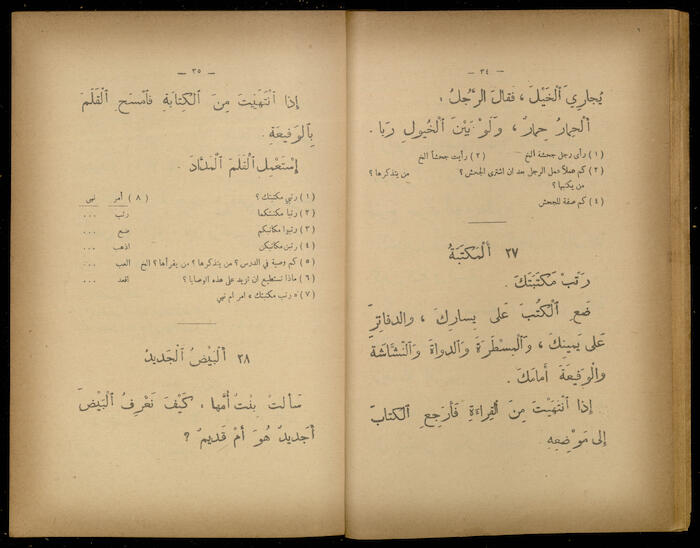 — ٣٤ —
يُجارِيَ ٱلْخَيْلَ ، فَقالَ الرَّجُلُ :
أَلْحِمارُ حِمارٌ ، وَلَوْ بَيْنَ ٱلْخُيُولِ رَبا .
( ١ ) رأى رجل جحشة الخ ( ٢ ) رأيت جحشاً الخ
( ٣ ) كم عملاً عمل الرجل بعد ان اشترى الجحش ؟ من يتذكرها ؟
من يكتبها ؟
( ٤ ) كم صفة للجحش
٢٧ أَلْمَكْتَبَةُ
رَتِّبْ مَكْتَبَتَكَ .
ضَعِ ٱلْكُتُبَ عَلى يَسارِكَ ، والدَفاتِرَ
عَلى يَمِينِكَ ، وَٱلْمِسْطَرَةَ وَالدواةَ وَٱلنَّشَّاشَةَ
وٱلْوَقِيعَةَ أَمامَكَ .
إِذا ٱنْتَهَيْتَ مِنَ ٱلْقِراءَةِ فَأَرْجِعِ ٱلْكِتابَ
إِلى مَوْضِعِهِ
— ٣٥ —
إِذا ٱنْتَهَيْتَ مِنَ ٱلْكِتابَةِ فٱمْسَحِ ٱلْقَلَمَ
بِٱلْوَقِيعَةِ .
إِسْتَعْمِلِ ٱلْقَلَمَ ٱلْمَدَّادَ .
( ١ ) رتبي مكتبتك ؟ ( ٨ ) أمر نهي
( ٢ ) رتبا مكتبتكما رتب . . .
( ٣ ) رتبوا مكاتبكم ضع . . .
( ٤ ) رتبن مكاتبكن اذهب . . .
( ٥ ) كم وصية في الدرس ؟ من يتذكرها ؟ من يقرأها ؟ الخ العب . . .
( ٦ ) ماذا تستطيع ان تزيد على هذه الوصايا ؟ اقعد . . .
( ٧ ) « رتب مكتبتك » امر ام نهي
٢٨ أَلْبَيْضُ ٱلْجَدِيدُ
سَأَلَتْ بِنْتٌ أُمَّها : كَيْفَ نَعْرِفُ ٱلْبَيْضَ
أَجَدِيدٌ هُوَ أَمْ قَدِيمٌ ؟